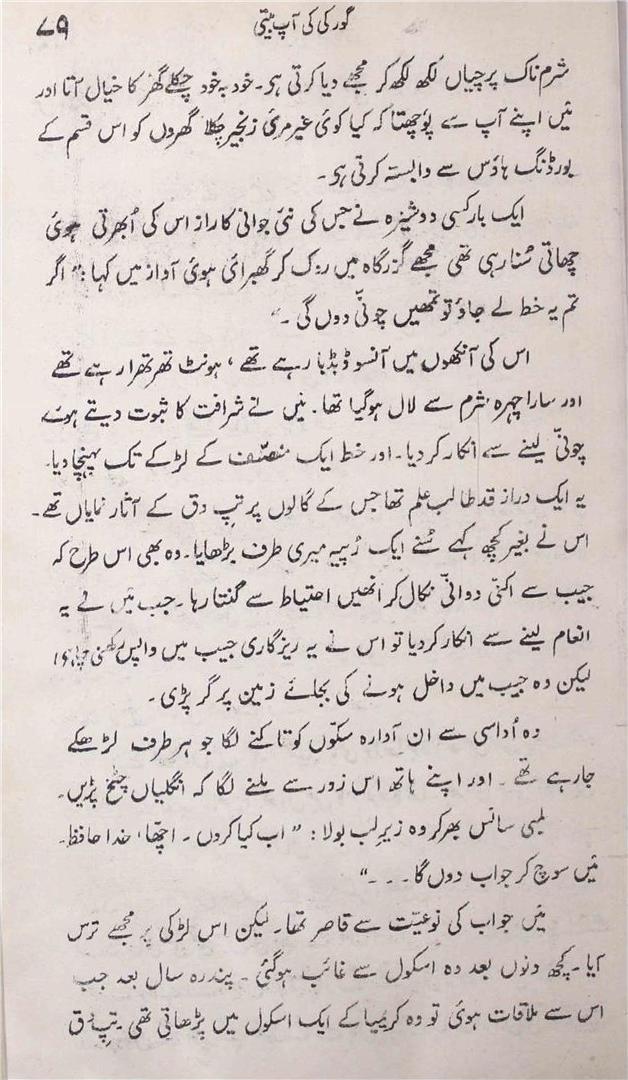 گورکی کی آپ بیتی
۷۹
شرم ناک پرچیاں لکھ لکھ کر مجھے دیا کرتی ہی۔ خود بہ خود چکلے گھر کا خیال آتا اور
میں اپنے آپ سے پوچھتا کہ کیا کوئی غیر مرئی زنجیر چکلا گھروں کو اس قسم کے
بورڈنگ ہاؤس سے وابستہ کرتی ہی۔
ایک بار کسی دوشیزہ نے جس کی نئی جوانی کا راز اس کی اُبھرتی ہوئی
چھاتی سُنا رہی تھی مجھے گزرگاہ میں روک کر گھبرائی ہوئی آواز میں کہا: "اگر
تم یہ خط لے جاؤ تو تمھیں چونّی دوں گی۔"
اس کی آنکھوں میں آنسو ڈبڈبا رہے تھے، ہونٹ تھرتھرا رہے تھے
اور سارا چہرہ شرم سے لال ہوگیا تھا۔ میں نے شرافت کا ثبوت دیتے ہوئے
چونّی لینے سے انکار کردیا۔ اور خط ایک منصّف کے لڑکے تک پہنچا دیا۔
یہ ایک دراز قد طالب علم تھا جس کے گالوں پر تپ دق کے آثار نمایاں تھے۔
اس نے بغیر کچھ کہے سُنے ایک رُپیہ میری طرف بڑھایا۔ وہ بھی اس طرح کہ
جیب سے اکنّی دوانّی نکال کر انھیں احتیاط سے گنتا رہا۔ جب میں نے یہ
انعام لینے سے انکار کردیا تو اس نے یہ ریزگاری جیب میں واپس رکھنی چاہی
لیکن وہ جیب میں داخل ہونے کی بجائے زمین پر گر پڑی۔
وہ اُداسی سے ان آوارہ سکّوں کو تاکنے لگا جو ہر طرف لڑھکے
جارہے تھے۔ اور اپنے ہاتھ اس زور سے ملنے لگا کہ انگلیاں چٹخ پڑیں۔
لمبی سانس بھر کر وہ زیرِ لب بولا: "اب کیا کروں۔ اچھّا، خدا حافظ۔
میں سوچ کر جواب دوں گا۔۔۔"
میں جواب کی نوعیّت سے قاصر تھا۔ لیکن اس لڑکی پر مجھے ترس
آیا۔ کچھ دنوں بعد وہ اسکول سے غائب ہوگئی۔ پندرہ سال بعد جب
اس سے ملاقات ہوئی تو وہ کریمیا کے ایک اسکول میں پڑھاتی تھی۔ تپ دق